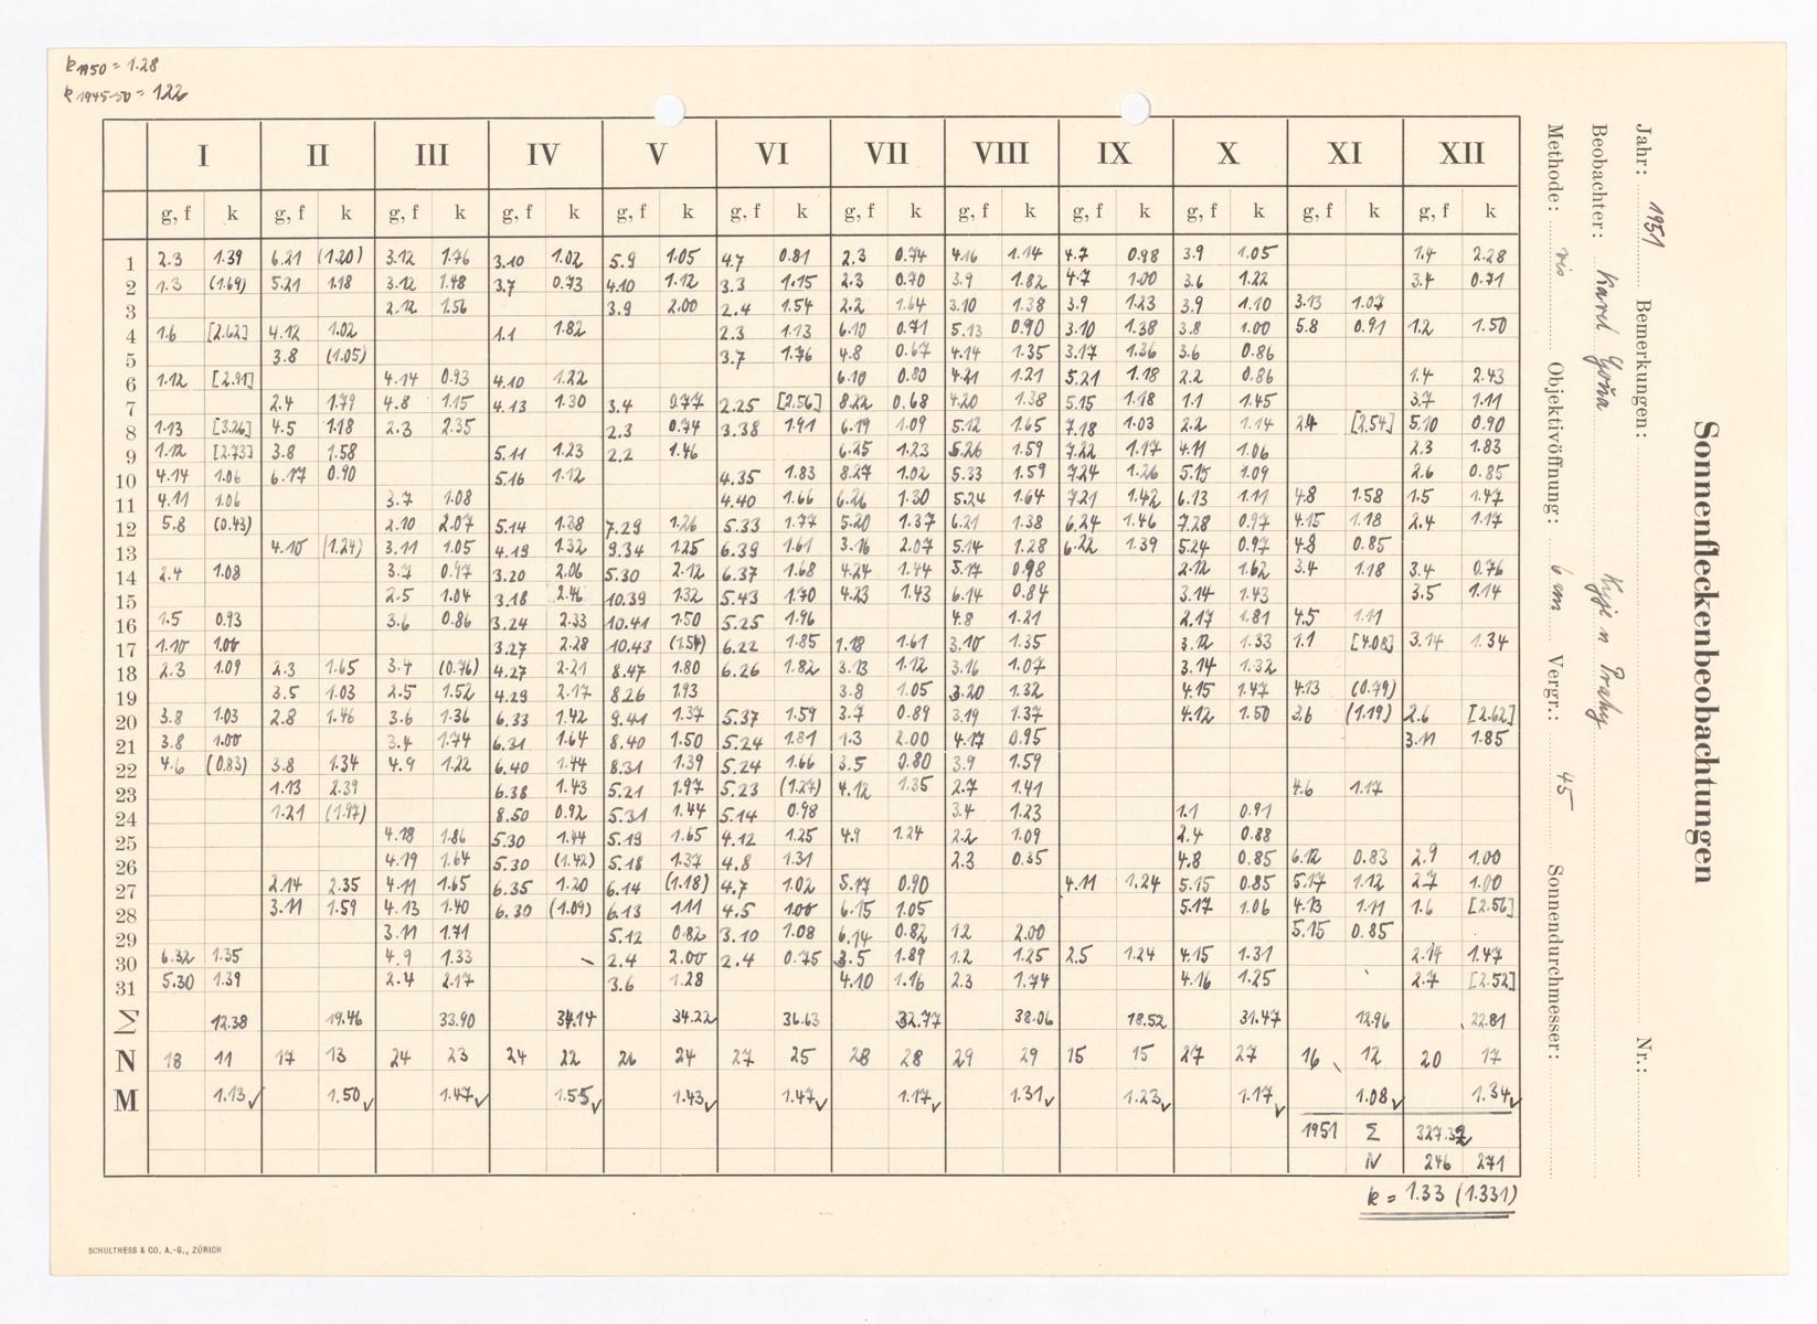 k1950 = 1.28
k1945-50 = 1.22
I II III IV V VI VII VIII IX X XI XII
g, f k g, f k g, f k g, f k g, f k g, f k g, f k g, f k g, f k g, f k g, f k g, f k
1 2.3 1.39 6.21 (1.20) 3.12 1.76 3.10 1.02 5.9 1.05 4.7 0.81 2.3 0.74 4.16 1.14 4.7 0.98 3.9 1.05 1.4 2.28
2 1.3 (1.69) 5.21 1.18 3.12 1.48 3.7 0.73 4.10 1.12 3.3 1.15 2.3 0.70 3.9 1.82 4.7 1.00 3.6 1.22 3.4 0.71
3 2.12 1.56 3.9 2.00 2.4 1.54 2.2 1.64 3.10 1.38 3.9 1.23 3.9 1.10 3.13 1.07
4 1.6 [2.62] 4.12 1.02 1.1 1.82 2.3 1.13 6.10 0.71 5.13 0.90 3.10 1.38 3.8 1.00 5.8 0.91 1.2 1.50
5 3.8 (1.05) 3.7 1.76 4.8 0.67 4.14 1.35 3.17 1.36 3.6 0.86
6 1.12 [2.91] 4.14 0.93 4.10 1.22 6.10 0.80 4.21 1.21 5.21 1.18 2.2 0.86 1.4 2.43
7 2.4 1.79 4.8 1.15 4.13 1.30 3.4 0.77 2.25 [2.56] 8.22 0.68 4.20 1.38 5.15 1.18 1.1 1.45 3.7 1.11
8 1.13 [3.26] 4.5 1.18 2.3 2.35 2.3 0.74 3.38 1.91 6.19 1.09 5.12 1.65 7.18 1.03 2.2 1.14 2.4 [2.54] 5.10 0.90
9 1.12 [2.73] 3.8 1.58 5.11 1.23 2.2 1.46 6.25 1.23 5.26 1.59 7.22 1.17 4.11 1.06 2.3 1.83
10 4.14 1.06 6.17 0.90 5.16 1.12 4.35 1.83 8.27 1.02 5.33 1.59 7.24 1.26 5.15 1.09 2.6 0.85
11 4.11 1.06 3.7 1.08 4.40 1.66 6.26 1.30 5.24 1.64 7.21 1.42 6.13 1.11 4.8 1.58 1.5 1.47
12 5.8 (0.43) 2.10 2.07 5.14 1.38 7.29 1.26 5.33 1.77 5.20 1.37 6.21 1.38 6.24 1.46 7.28 0.97 4.15 1.18 2.4 1.17
13 4.10 (1.24) 3.11 1.05 4.19 1.32 9.34 1.25 6.39 1.61 3.16 2.07 5.14 1.28 6.22 1.39 5.24 0.97 4.8 0.85
14 2.4 1.08 3.7 0.97 3.20 2.06 5.30 2.12 6.37 1.68 4.24 1.44 5.17 0.98 2.12 1.62 3.4 1.18 3.4 0.76
15 2.5 1.04 3.18 2.46 10.39 1.32 5.43 1.70 4.23 1.43 6.14 0.84 3.14 1.43 3.5 1.14
16 1.5 0.93 3.6 0.86 3.24 2.33 10.41 1.50 5.25 1.96 4.8 1.21 2.17 1.81 4.5 1.11
17 1.10 1.00 3.27 2.28 10.43 (1.54) 6.22 1.85 1.18 1.61 3.10 1.35 3.12 1.33 1.1 [4.08] 3.14 1.34
18 2.3 1.09 2.3 1.65 3.4 (0.76) 4.27 2.21 8.47 1.80 6.26 1.82 3.13 1.12 3.16 1.07 3.14 1.32
19 3.5 1.03 2.5 1.52 4.29 2.17 8.26 1.93 3.8 1.05 3.20 1.32 4.15 1.47 4.13 (0.79)
20 3.8 1.03 2.8 1.46 3.6 1.36 6.33 1.42 9.41 1.37 5.37 1.59 3.7 0.89 3.19 1.37 4.12 1.50 3.6 (1.19) 2.6 [2.62]
21 3.8 1.00 3.4 1.74 6.31 1.64 8.40 1.50 5.24 1.81 1.3 2.00 4.17 0.95 3.11 1.85
22 4.6 (0.83) 3.8 1.34 4.9 1.22 6.40 1.44 8.31 1.39 5.24 1.66 3.5 0.80 3.9 1.59
23 1.13 2.39 6.38 1.43 5.21 1.97 5.23 (1.27) 4.12 1.35 2.7 1.41 4.6 1.17
24 1.21 (1.97) 8.50 0.92 5.31 1.44 5.14 0.98 3.4 1.23 1.1 0.91
25 4.18 1.86 5.30 1.44 5.19 1.65 4.12 1.25 4.9 1.24 2.2 1.09 2.4 0.88
26 4.19 1.64 5.30 (1.42) 5.18 1.37 4.8 1.31 2.3 0.35 4.8 0.85 6.12 0.83 2.9 1.00
27 2.14 2.35 4.11 1.65 6.35 1.20 6.14 (1.18) 4.7 1.02 5.17 0.90 4.11 1.24 5.15 0.85 5.17 1.12 2.7 1.00
28 3.11 1.59 4.13 1.40 6.30 (1.09) 6.13 1.11 4.5 1.00 6.15 1.05 5.17 1.06 4.13 1.11 1.6 [2.56]
29 3.11 1.71 5.12 0.82 3.10 1.08 6.14 0.82 1.2 2.00 5.15 0.85
30 6.32 1.35 4.9 1.33 2.4 2.00 2.4 0.75 3.5 1.89 1.2 1.25 2.5 1.24 4.15 1.31 2.14 1.47
31 5.30 1.39 2.4 2.17 3.6 1.28 4.10 1.16 2.3 1.74 4.16 1.25 2.7 [2.52]
Σ 12.38 19.46 33.90 34.14 34.22 36.63 32.77 38.06 18.52 31.47 12.96 22.81
N 18 11 17 13 24 23 24 22 26 24 27 25 28 28 29 29 15 15 27 27 16 12 20 17
M 1.13✓ 1.50✓ 1.47✓ 1.55✓ 1.43✓ 1.47✓ 1.17✓ 1.31✓ 1.23✓ 1.17✓ 1.08✓ 1.34✓
1951 Σ 327.32
N 246 271
k = 1.33 (1.331)
SCHULTHESS & CO. A.-G., ZÜRICH
Sonnenfleckenbeobachtungen
Jahr: 1951 Bemerkungen: Nr.:
Beobachter: Karel Goňa Kyje u Prahy
Methode: vis Objektivöffnung: 6 cm Vergr.: 45 Sonnendurchmesser: